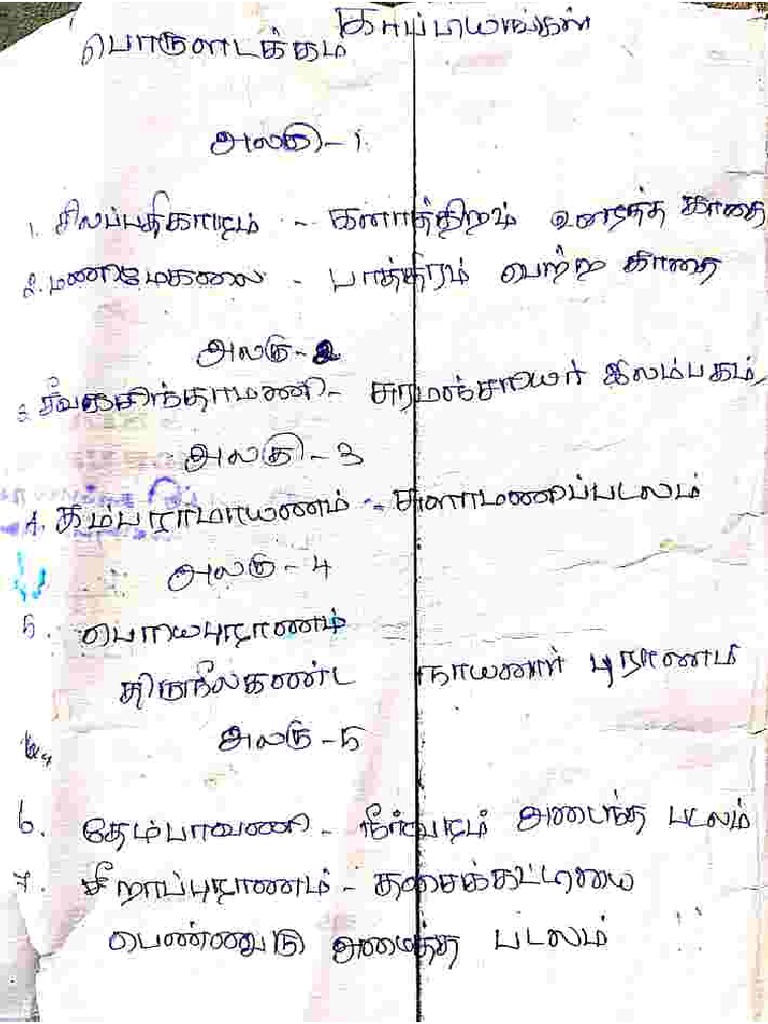 காப்பியங்கள்
பொருளடக்கம்
அலகு - 1
1. சிலப்பதிகாரம் - கனாத்திறம் உரைத்த காதை
2. மணிமேகலை - பாத்திரம் பெற்ற காதை
அலகு - 2
3. சீவகசிந்தாமணி - சுரமஞ்சரியார் இலம்பகம்
அலகு - 3
4. கம்பராமாயணம் - சூளாமணிப்படலம்
அலகு - 4
5. பெரியபுராணம்
திருநீலகண்ட நாயனார் புராணம்
அலகு - 5
6. தேம்பாவணி - நீர்வரம் அடைந்த படலம்
7. சீறாப்புராணம் - தசைக்கட்டியை
பெண்ணுரு அமைத்த படலம்